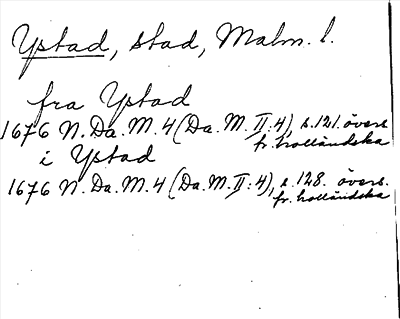 Ystad, stad, Malm. l.
fra Ystad
1676 N. Da. M. 4 (Da. M. II:4), s. 121. övers.
fr. holländska
i Ystad
1676 N. Da. M. 4 (Da. M. II:4), s. 128. övers.
fr. holländska